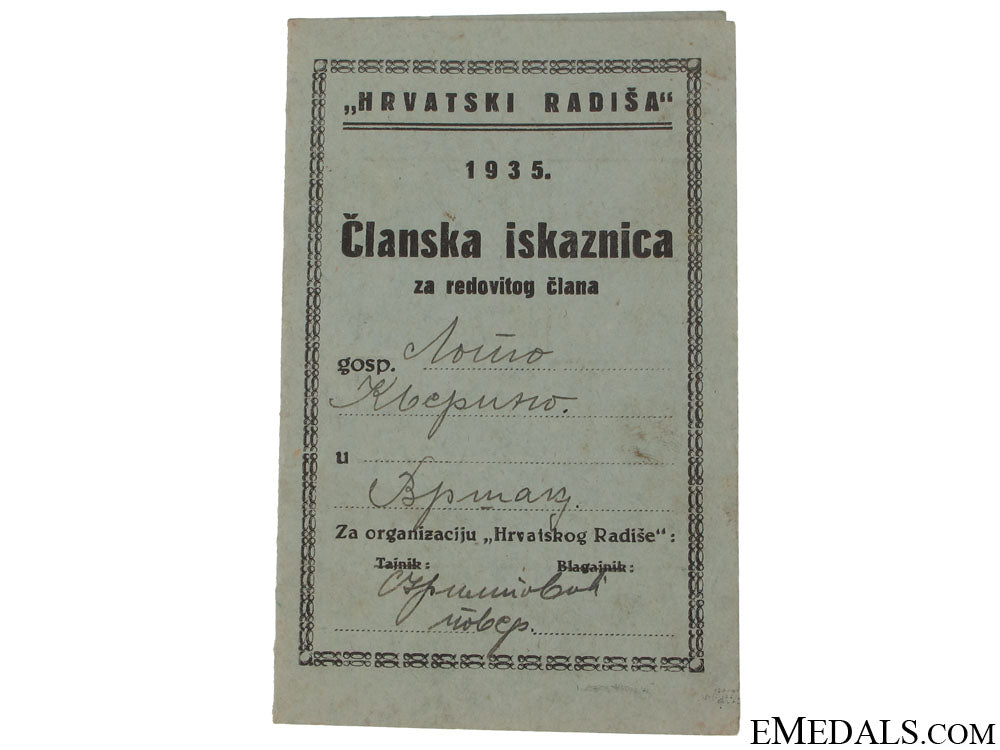 „HRVATSKI RADIŠA“
1935.
Članska iskaznica
za redovitog člana
gosp. Лойто
Кверино.
u
Вршац.
Za organizaciju „Hrvatskog Radiše“:
Tajnik: Blagajnik:
повер.
EMEDALS.COM